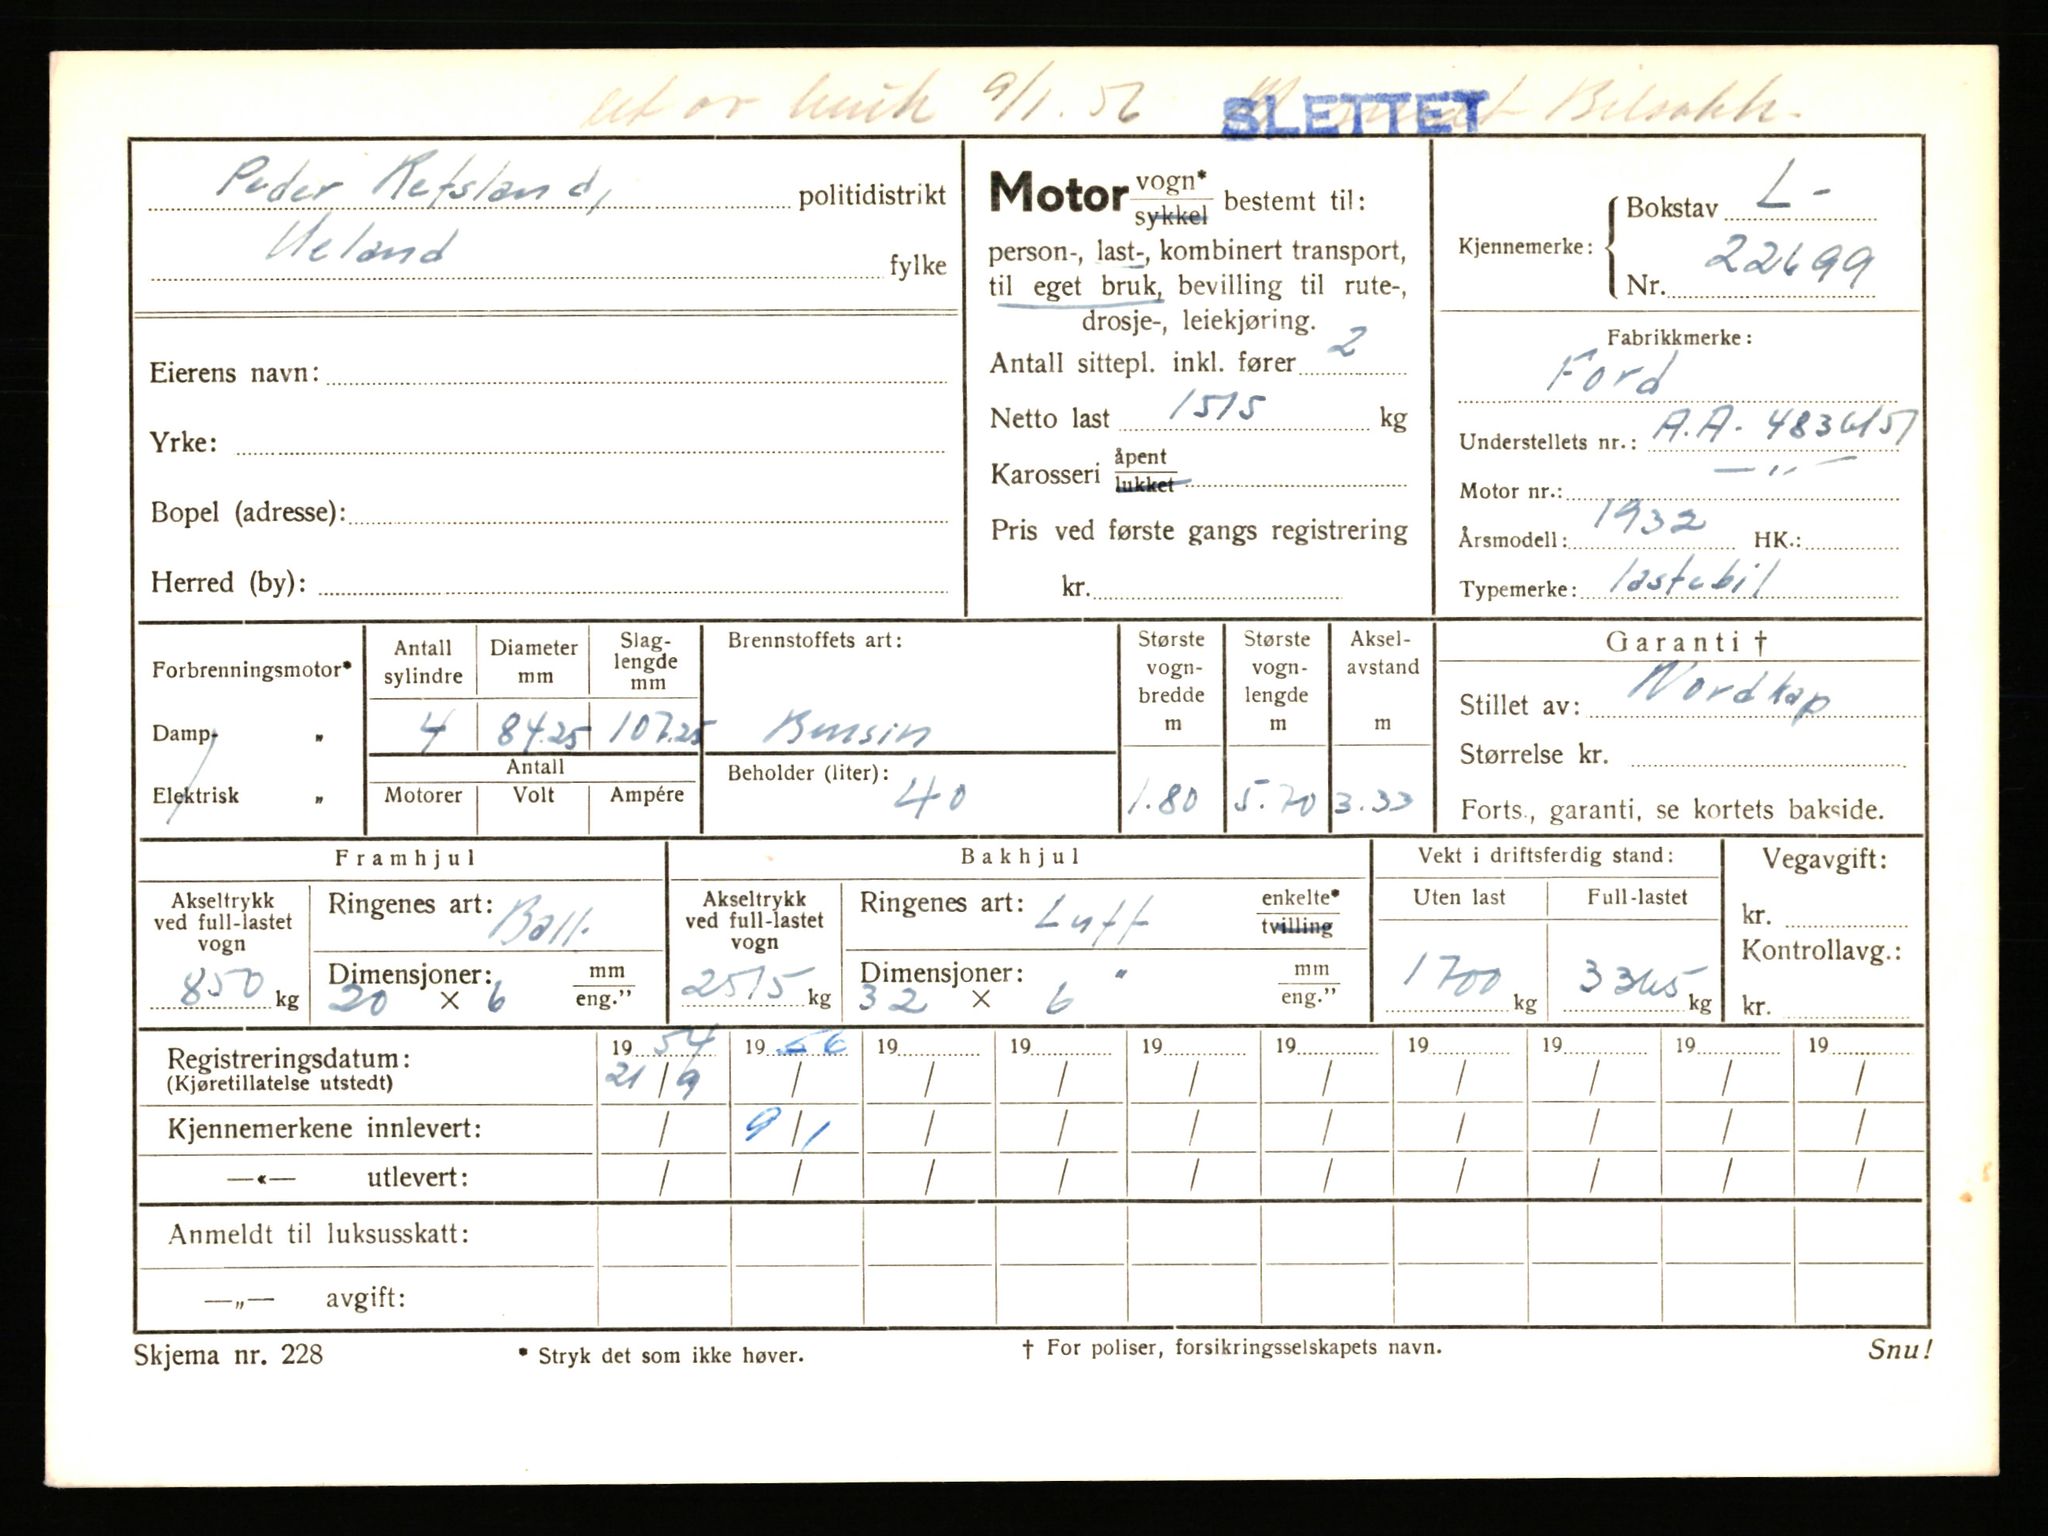 ut av bruk 9/1. 56 Bilsakk.
SLETTET
Peder Refsland, politidistrikt
Ueland fylke
Eierens navn:
Yrke:
Bopel (adresse):
Herred (by):
Motor vogn*
sykkel bestemt til:
person-, last-, kombinert transport,
til eget bruk, bevilling til rute-,
drosje-, leiekjøring.
Antall sittepl. inkl. fører 2
Netto last 1515 kg
Karosseri åpent
lukket
Pris ved første gangs registrering
kr.
Kjennemerke: Bokstav L-
Nr. 22699
Fabrikkmerke:
Ford
Understellets nr.: A.A. 4836151
Motor nr.: —"—
Årsmodell: 1932 HK.:
Typemerke: lastebil
Forbrenningsmotor*
Damp- „
Elektrisk „
Antall sylindre Diameter mm Slag-lengde mm
4 84.25 107.25
Antall
Motorer Volt Ampére
Brennstoffets art:
Bensin
Beholder (liter):
40
Største vogn-bredde m Største vogn-lengde m Aksel-avstand m
1.80 5.70 3.33
Garanti †
Stillet av: Nordkap
Størrelse kr.
Forts., garanti, se kortets bakside.
Framhjul
Akseltrykk
ved full-lastet
vogn
850 kg
Ringenes art: Ball.
Dimensjoner: mm
20 × 6 eng.”
Bakhjul
Akseltrykk
ved full-lastet
vogn
2515 kg
Ringenes art: Luft enkelte*
tvilling
Dimensjoner: " mm
32 × 6 eng.”
Vekt i driftsferdig stand:
Uten last Full-lastet
1700 kg 3365 kg
Vegavgift:
kr.
Kontrollavg.:
kr.
Registreringsdatum: 19 54 19 56 19 19 19 19 19 19 19 19
(Kjøretillatelse utstedt) 21/9 / / / / / / / / /
Kjennemerkene innlevert: / 9/1 / / / / / / / /
—«— utlevert: / / / / / / / / / /
Anmeldt til luksusskatt:
—„— avgift:
Skjema nr. 228 * Stryk det som ikke høver. † For poliser, forsikringsselskapets navn. Snu!